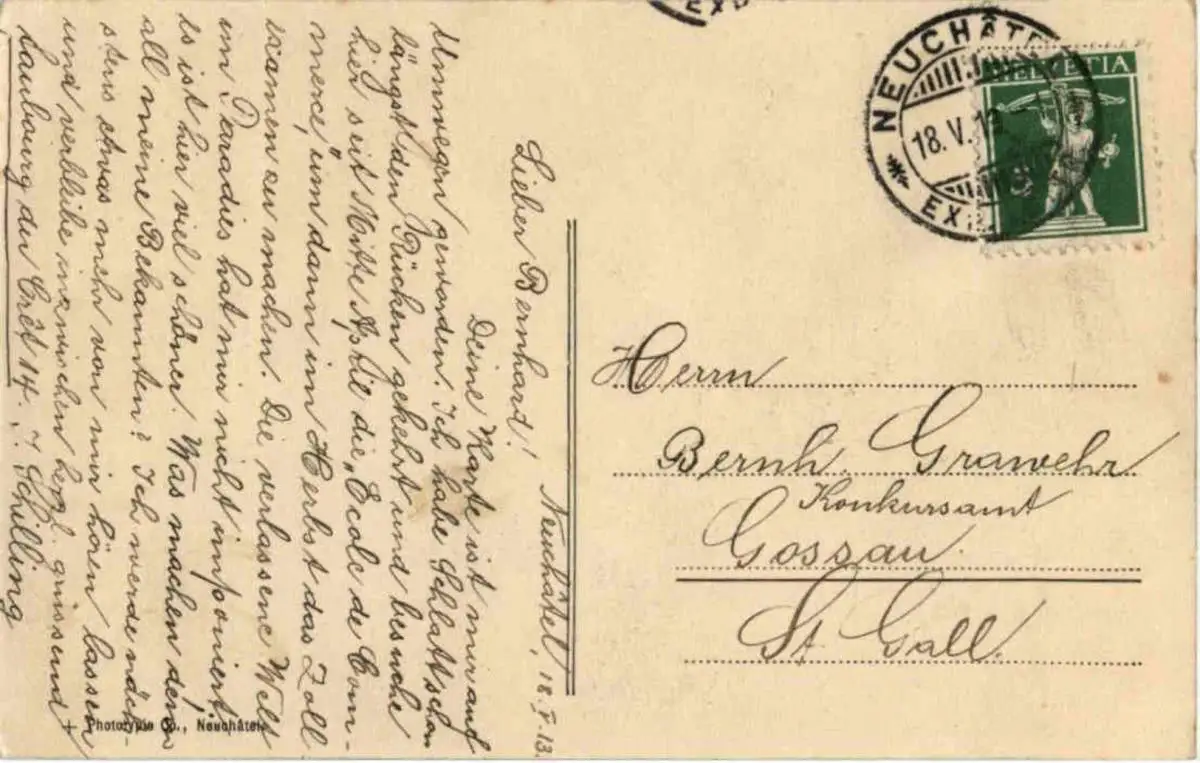 Neuchâtel, 18. V. 13.
Lieber Bernhard!
Deine Karte ist mir auf
Umwegen geworden. Ich habe Schlatt schon
längst den Rücken gekehrt und besuche
hier seit Mitte Aprile die „Ecole de Com-
merce", um dann im Herbst das Zoll
examen zu machen. Die verlassene Welt
im Paradies hat mir nicht imponiert,
es ist hier viel schöner. Was machen denn
all meine Bekannten? Ich werde näch-
stens etwas mehr von mir hören lassen
und verbleibe inzwischen herzl. grüssend
J. Schilling
Faubourg du Crêt 14.
+ Photoypie Co., Neuchâtel
NEUCHÂTEL
18. V. 13
EXP.
EXP
HELVETIA
Herrn
Bernh. Grawehr
Konkursamt
Gossau.
St. Gall.